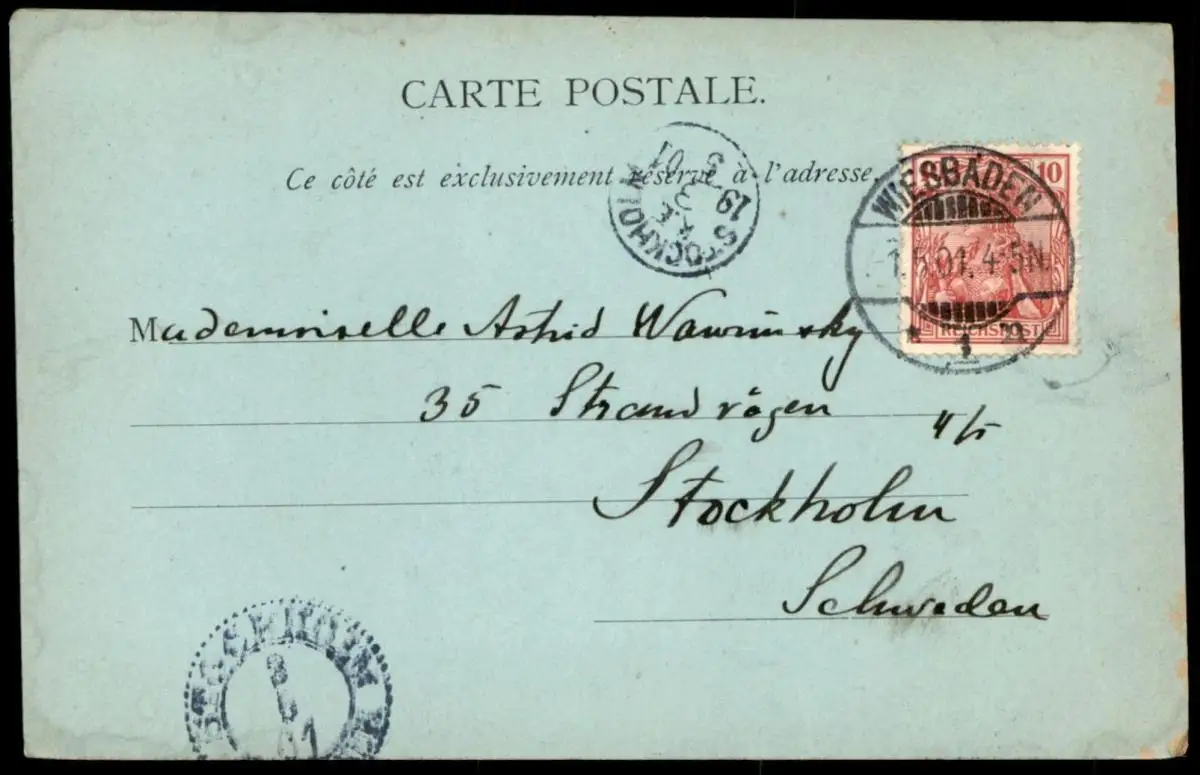 CARTE POSTALE.
Ce côté est exclusivement réservé à l'adresse.
10
WIESBADEN
1.5.01. 4-5N.
1
REICHSPOST
STOCKHOLM
19 3 5 01
Mademoiselle Astrid Wawrinsky
35 Strandvägen
Stockholm
Schweden
01